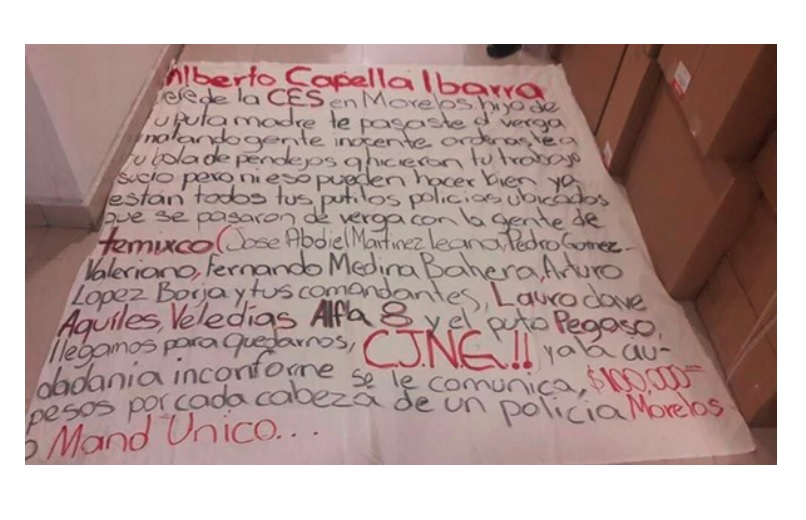 Alberto Capella Ibarra
Jefe de la CES en Morelos, hijo de
tu puta madre te pasaste d' verga
matando gente inocente ordenaste a
tu bola de pendejos q hicieran tu trabajo
sucio pero ni eso pueden hacer bien ya
están todos tus putilos policias ubicados
que se pasaron de verga con la gente de
temixco (Jose Abdiel Martinez Leana, Pedro Gomez-
Valeriano, Fernando Medina Bahera, Arturo
Lopez Borja y tus comandantes, Lauro clave
Aquiles, Veledias Alfa 8 y el puto Pegaso,
llegamos para quedarnos, CJNG!! ya la ciu-
dadania inconforme se le comunica, $100,000
pesos por cada cabeza de un policia Morelos
o Mand Unico...